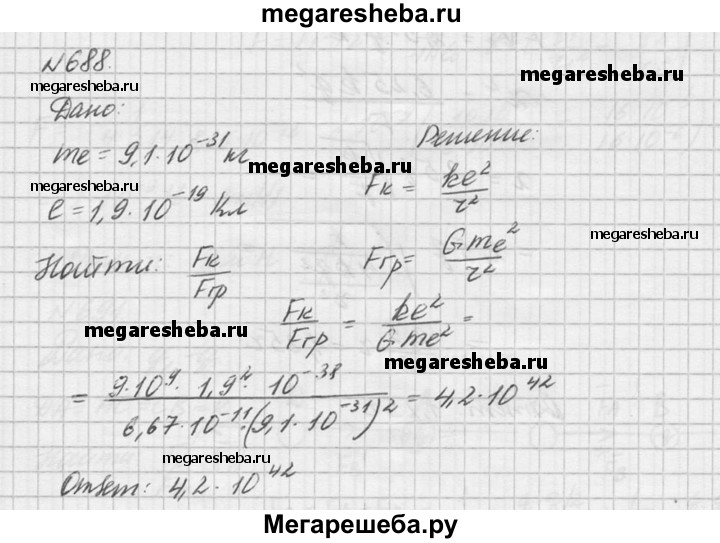 megaresheba.ru
№688.
megaresheba.ru
Дано:
megaresheba.ru
me = 9,1·10⁻³¹ кг
Решение:
megaresheba.ru
Fк = ke²/r²
megaresheba.ru
e = 1,9·10⁻¹⁹ Кл
megaresheba.ru
Найти: Fк/Fгр
Fгр = Gme²/r²
megaresheba.ru
Fк/Fгр = ke²/Gme² =
megaresheba.ru
= 9·10⁹·1,9²·10⁻³⁸/6,67·10⁻¹¹·(9,1·10⁻³¹)² = 4,2·10⁴²
megaresheba.ru
Ответ: 4,2·10⁴²
Мегарешеба.ру